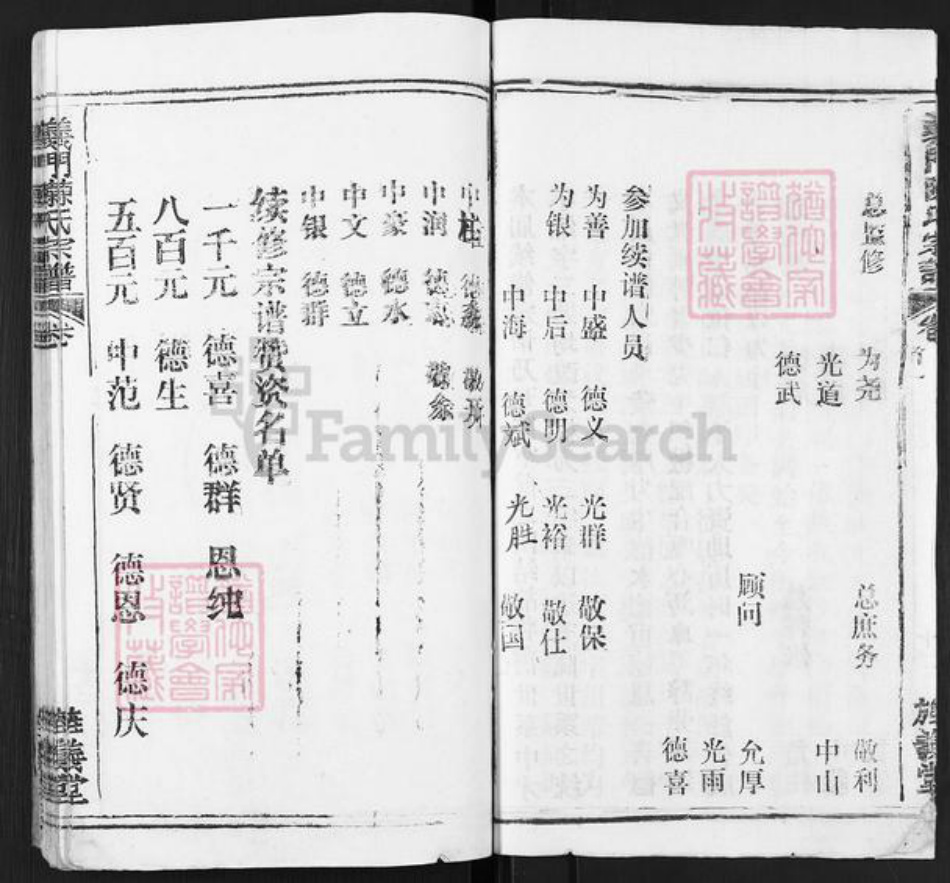 总监修 为尧 总庶务 敬利
光道 中山
德武 顾问 允厚
光雨
德喜
参加续谱人员
为善 中盛 德义 光群 敬保
为银 中后 德明 光裕 敬仕
中海 德斌 光胜 敬国
中桂
中润
中豪 德水
中文 德立
中银 德群
续修宗谱赞资名单
一千元 德喜 德群 恩纯
八百元 德生
五百元 中范 德贤 德恩 德庆
氏宗譜
義堂
FamilySearch
譜學會
收藏